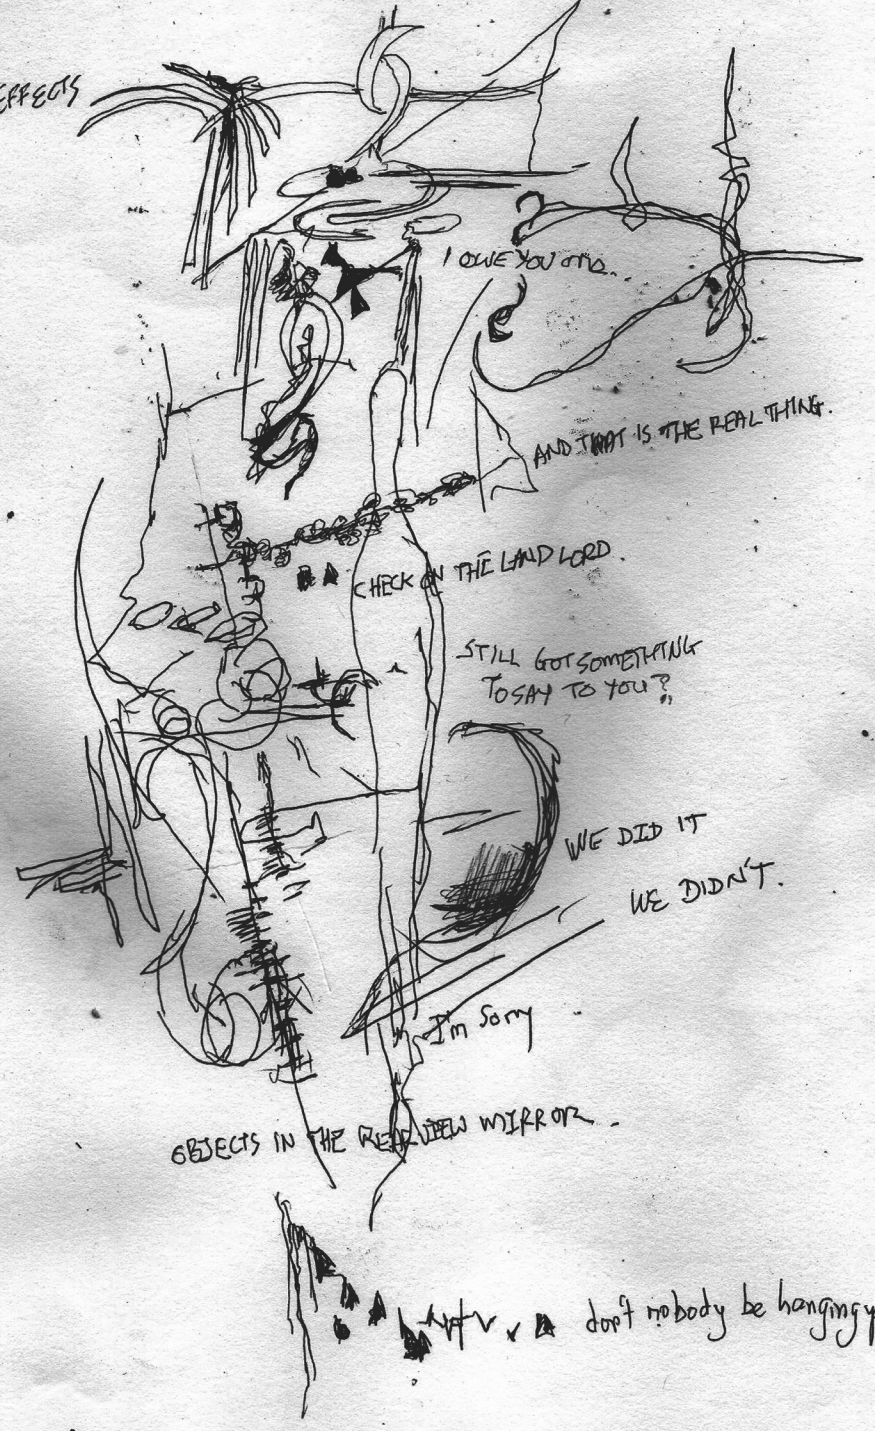 EFFECTS
I OWE YOU
AND THAT IS THE REAL THING.
CHECK ON THE LANDLORD.
STILL GOT SOMETHING
TO SAY TO YOU?
WE DID IT
WE DIDN'T.
I'm Sorry
OBJECTS IN THE REARVIEW MIRROR.
don't nobody be hanging